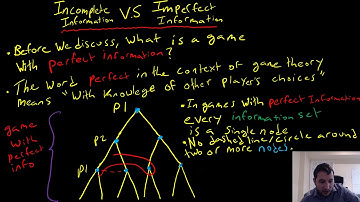 Incomplete Information V.S Imperfect Information
• Before we discuss, what is a game
with perfect information?
• The word perfect in the context of game theory
means "with knowlege of other player's choices"
P1
P2
P1
game
with
perfect
info
• In games with perfect Information
every information set
is a single node
• No dashed line/circle around
two or more nodes.